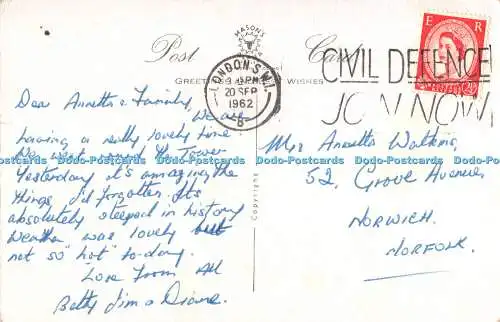 MASON'S
Post Card
GREETINGS WISHES
LONDON S.W.1.
20 SEP
1962
B
CIVIL DEFENCE
JOIN NOW
E R
Dear Annetta & Family, We are
having a really lovely time
We went round the Tower
Yesterday it's amazing the
things I'd forgotten. Its
absolutely steeped in history
Weather was lovely but
not so hot to-day.
Love from All
Betty Jim & Diane.
Copyright
Mrs Annetta Watkins,
52, Grove Avenue,
NORWICH.
NORFOLK.
Dodo-Postcards Dodo-Postcards Dodo-Postcards Dodo-Postcards